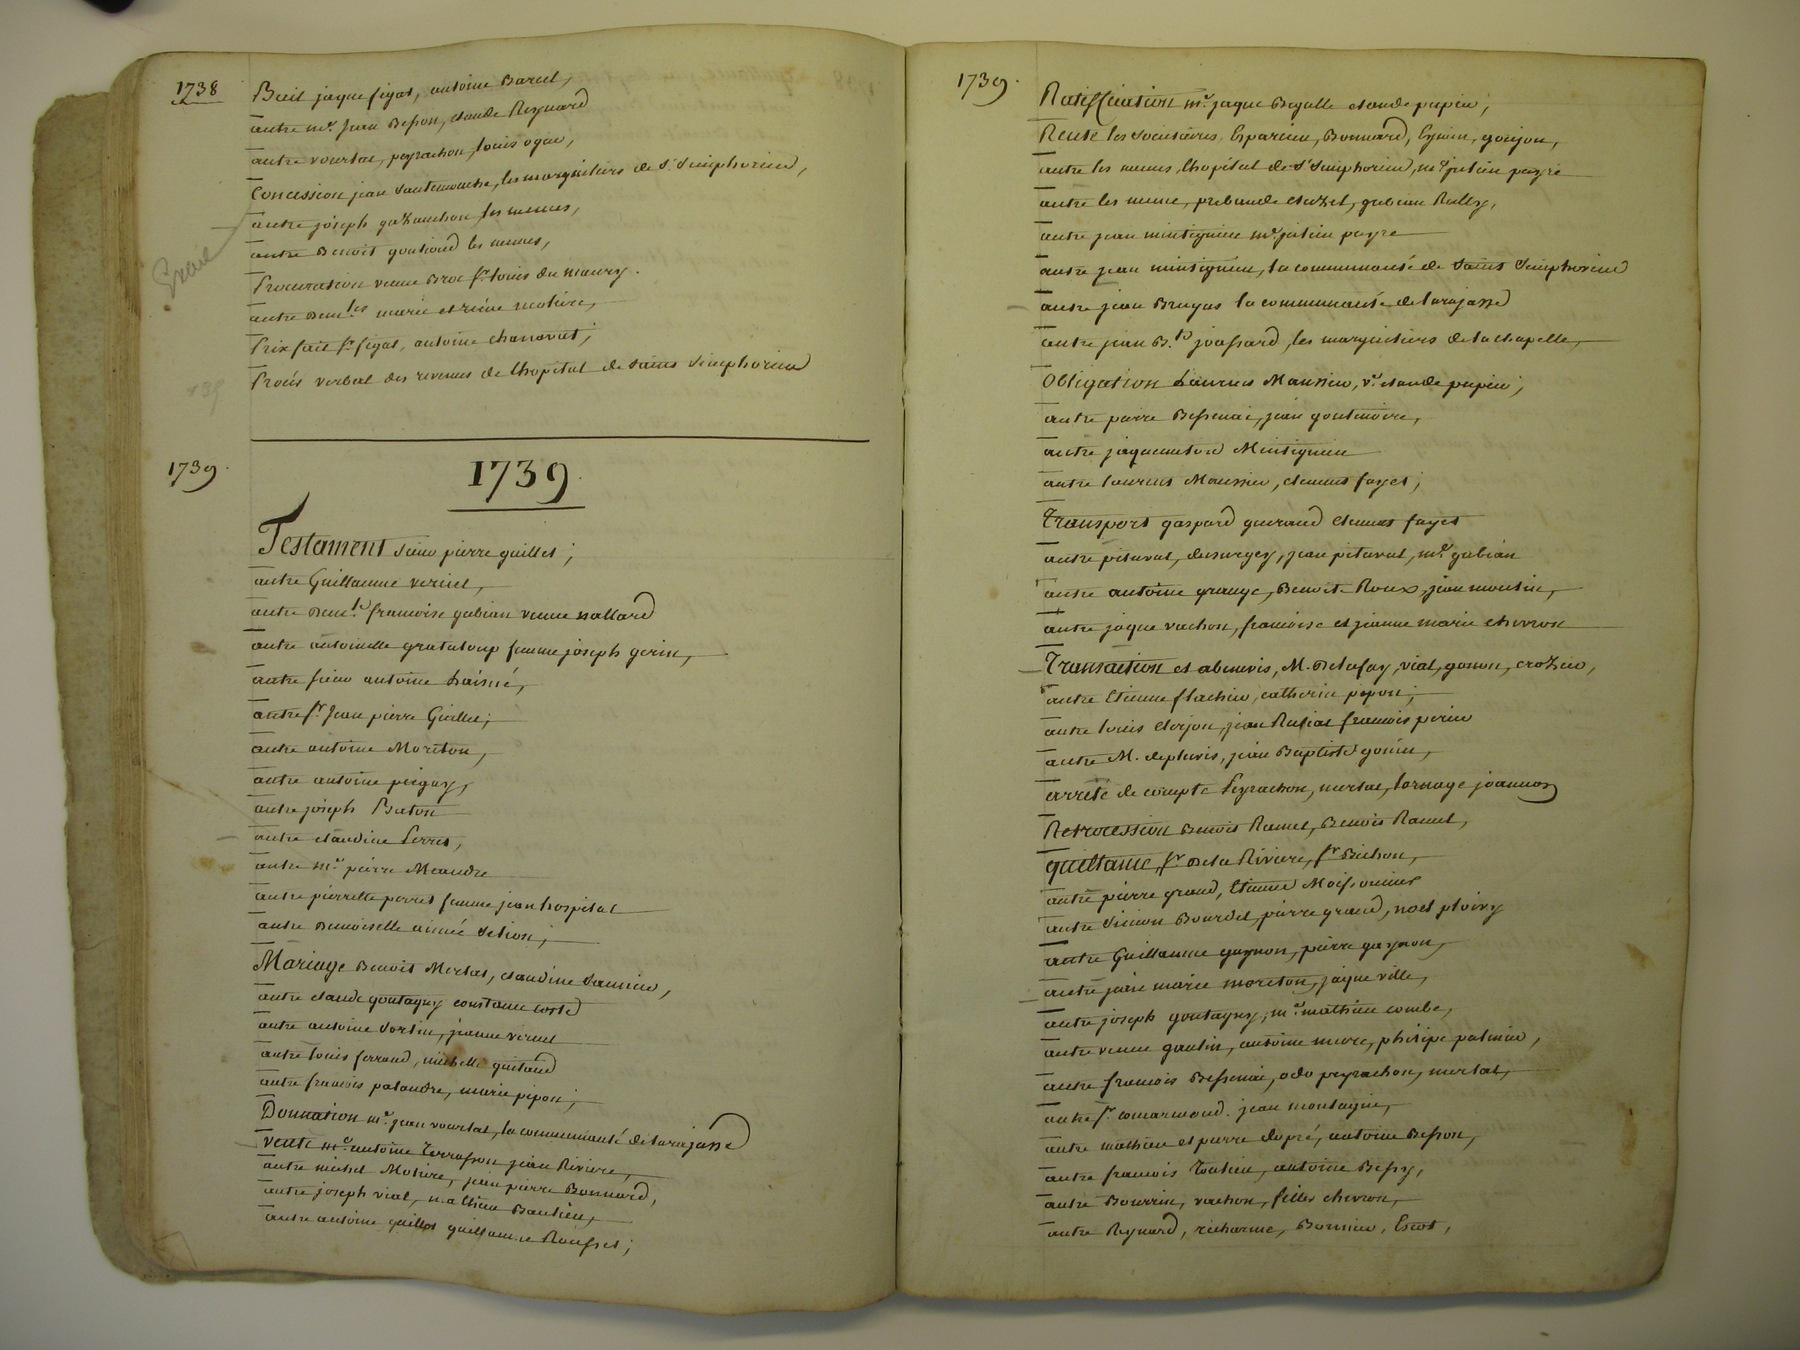 1738
Bail jaque figat, antoine Barcel,
autre me. Jean Besson, claude Reynard
autre vourlat, peyrachon, louis ogier,
Concession jean Santemouche, les marguiliers de St Simphorien,
autre joseph gazanchon les memes,
autre Benoit goutiond les memes,
Grave
Procuration veuve Broc Sr. louis du maury.
autre Dem.lles marie et reine moliere,
Prix fait Sr. figat, antoine chanavat,
Procés verbal des revenus de lhopital de saint Simphorien
1739.
1739.
Testament sieur pierre guillet;
autre Guillaume verinel,
autre Dem.le francoise gabian veuve nallard
autre antoinette grataloup femme joseph gerin,
autre sieur antoine Lainé,
autre Sr. Jean pierre Guillet;
autre antoine Moreton,
autre antoine peigny,
autre joseph Baton
autre claudine Perret,
autre me. pierre Meandre
autre pierrette perret femme jean hospital
autre Demoiselle aimée Selion;
Mariage Benoit Merlat, claudine Saunier,
autre claude goutagny constance coste
autre antoine Sortin, jeanne verinel
autre louis ferrand, michelle guitaud
autre francois palandre, marie pipon;
Donnation me. jean vourlat, la communauté de larajasse
Vente me. antoine Terrasson jean Riviere,
autre michel Moliere, jean pierre Bonnard,
autre joseph vial, mathieu Bautien,
autre antoine guillot guillaume Rousset;
1739.
Ratification me. jaque Bezalle claude pupier;
Rente les societaires, Esparieu, Bonnard, Eymin, goujon,
autre les memes, lhopital de St Simphorien, me. julien peyre
autre les meme, prebande cluzel, gubian Rully,
autre jean mintignieu me. julien payre
autre jean mintignieu, la communauté de saint Simphorien
autre jean Bruyas la communauté de larajasse
autre jean B.te joassard, les marguiliers de la chapelle,
Obligation Laurens Maunieu, ve. claude pupier;
autre pierre Bessenai, jean goutenoire,
autre jaquemeton Mintignieu
autre laurens Maunier, clement fayet;
Transport gaspard guerand clement fayet
autre pitaval, dusurgey, jean pitaval, me. gabian
autre antoine grange, Benoit Roux, jean moulin,
autre jaque vachon, francoise et jeanne marie chevron
Transaction et abenevis, M. Delafay, vial, gonon, crozier,
autre Etienne flachier, catherin pipon;
autre louis clerjon, jean Ruliat francois perier
autre M. deplavis, jean Baptiste gonin,
arreté de compte Peyrachon, merlat, lornage joannon
Retrocession Benoit Ramel, Benoit Ramel,
quittance, Sr Dela Riviere, Sr Bichon,
autre pierre grand, Etienne Moissonnier
autre Simon Bourdel, pierre grand, noel ploivy
autre Guillaume guynon, pierre gaynon,
autre jean marie moreton, jaque ville,
autre joseph goutagny, me. mathieu combe,
autre veuve gautin, antoine mure, philipe patinier,
autre francois Bessenai, odo peyrachon, merlat,
autre Sr. comarmond. jean montagne,
autre mathieu et pierre dupré, antoine Besson,
autre francois Toulieu, antoine Bessy,
autre Bourrin, vachon, filles chevron,
autre Reynard, richarme, Bonnier, Escot,